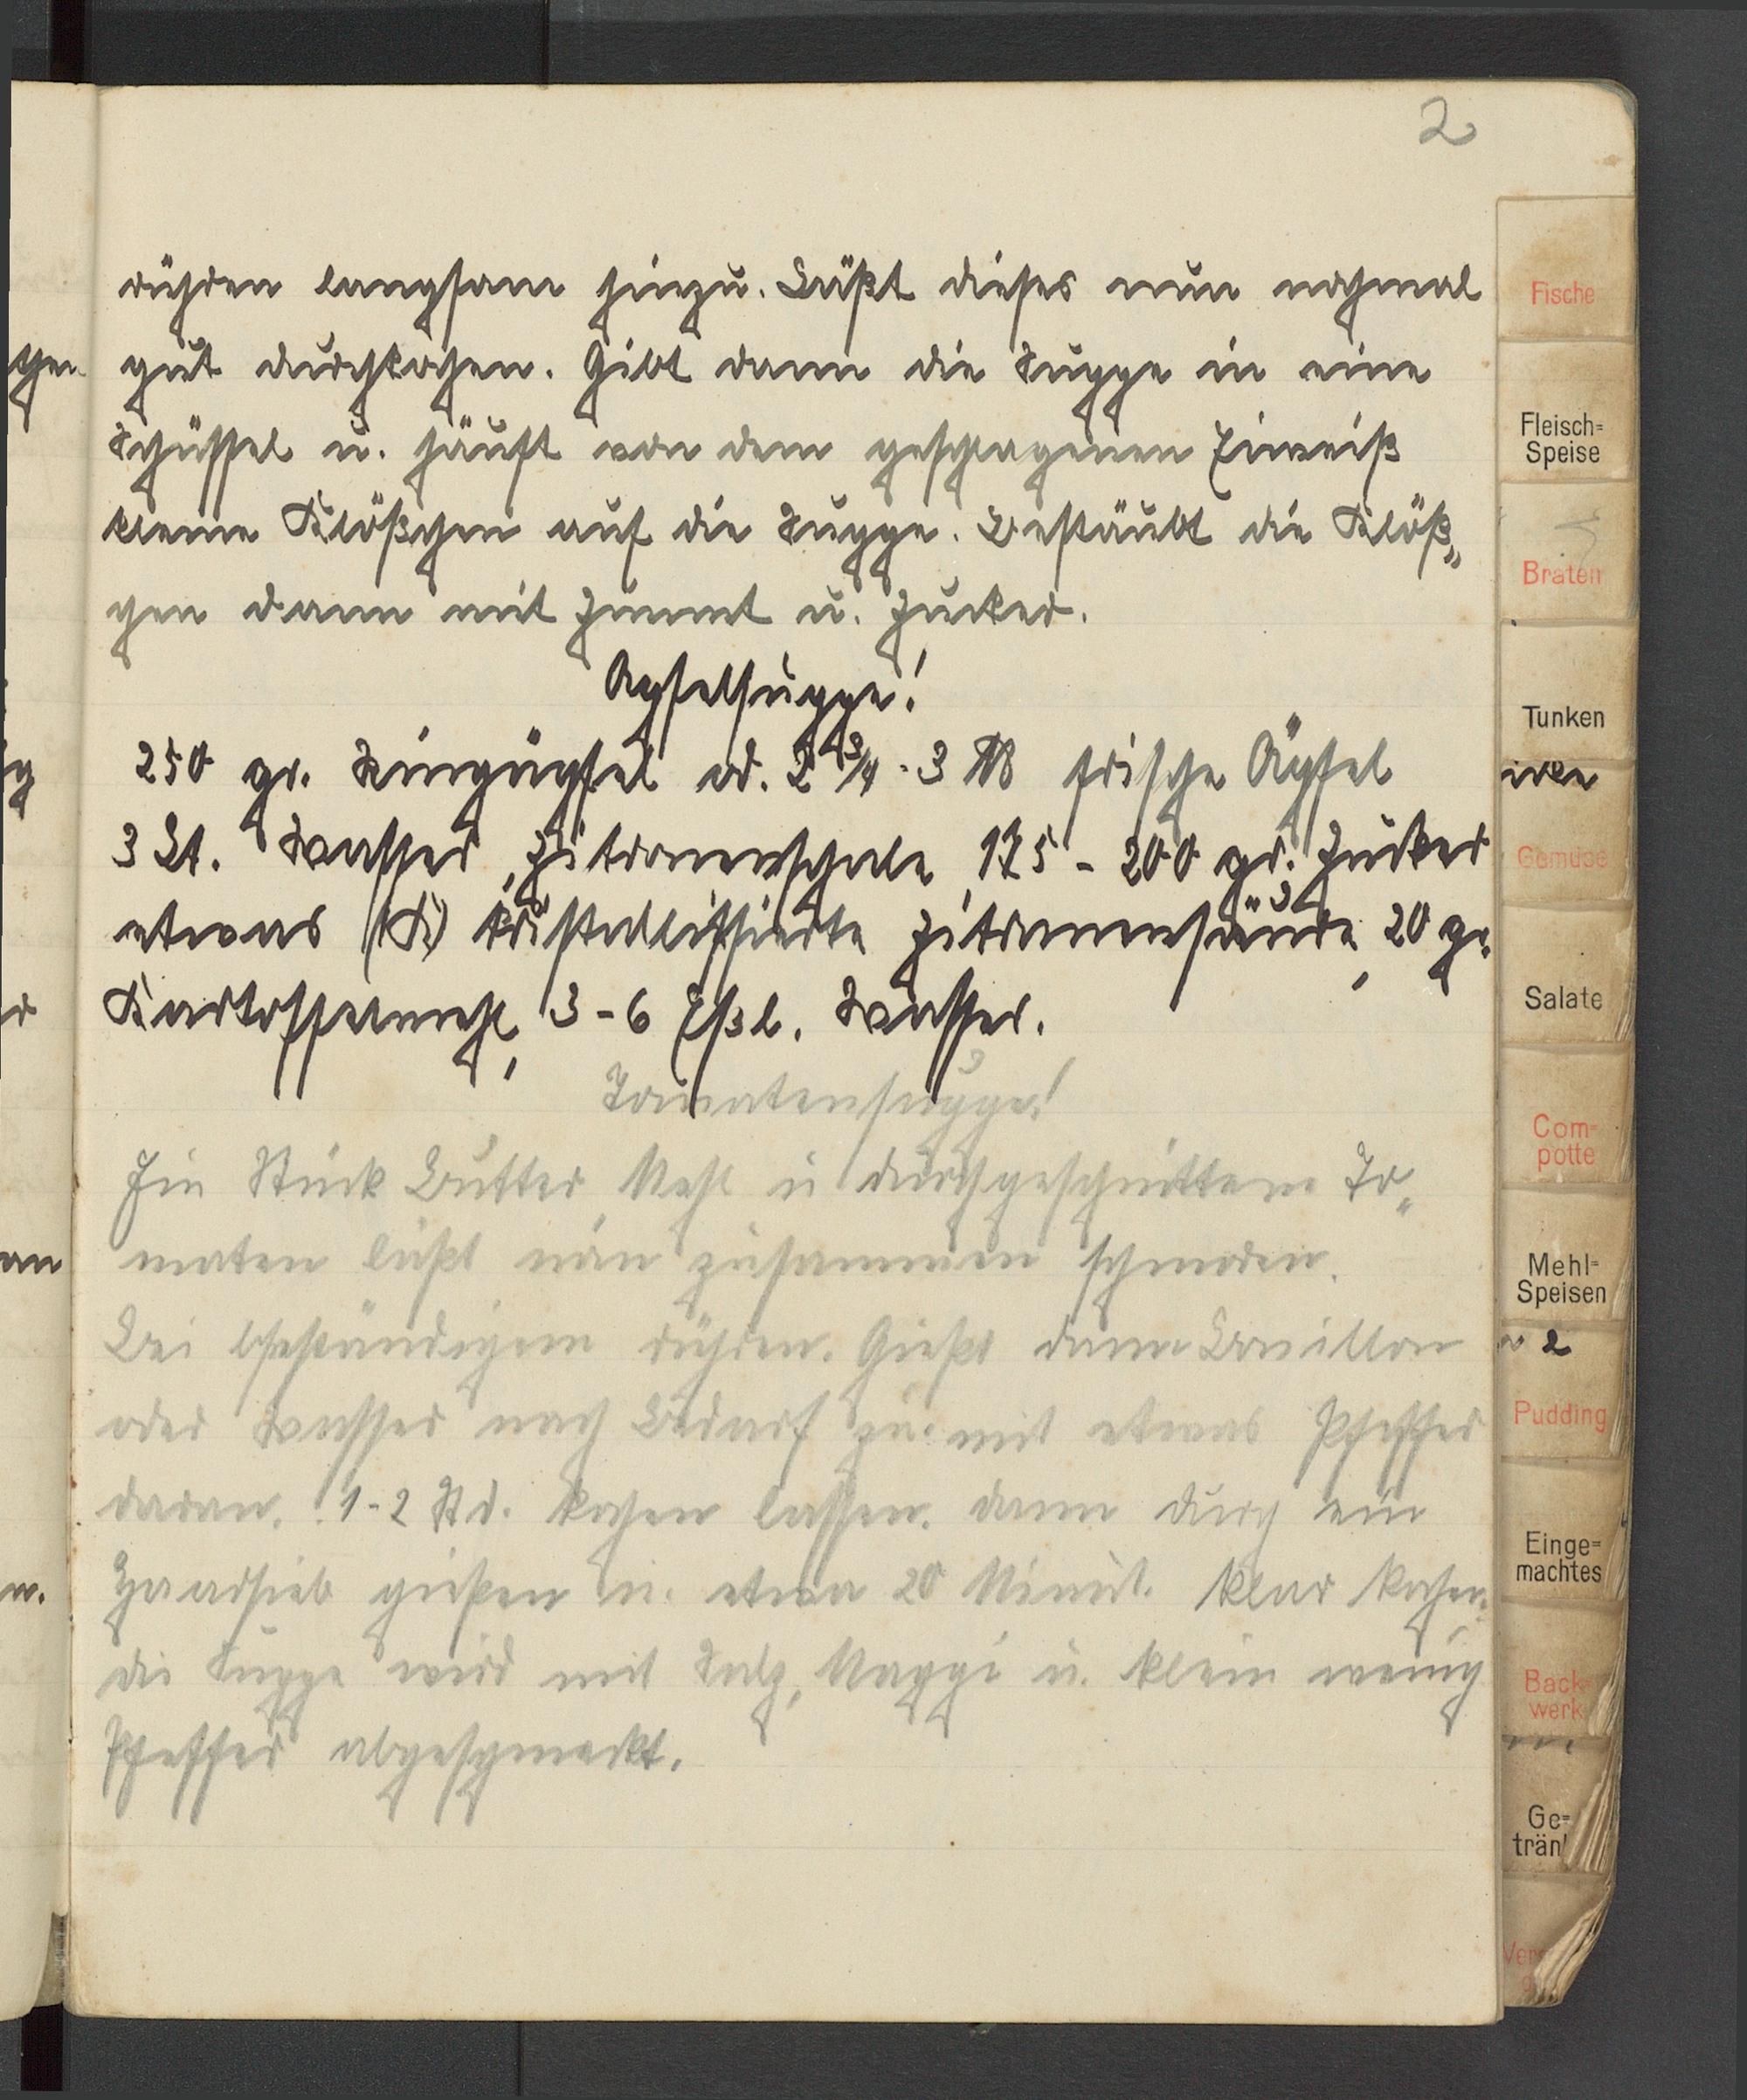 2
rühren langsam hinzu. Läßt dieses nun nochmal
gut durchkochen. Gibt dann die Suppe in eine
Schüssel u. häuft von dem geschlagenen Eiweiß
kleine Klößchen auf die Suppe. Bestäubt die Klöß„
chen dann mit Zimmt u. Zucker.
Apfelsuppe!
250 gr. Ringäpfel od. 2 3/4 - 3 ℔ frische Äpfel
3 Lt. Wasser, Zitronenschale, 175 - 200 gr. Zucker
etwas (K) kristallissierte Zitronensäure, 20 gr.
Kartoffelmehl, 3-6 Eßl. Wasser.
Tomatensuppe!
Ein Stück Butter, Mehl u durchgeschnittene To„
maten läßt man zusammen schmoren.
Bei beständigem rühren. Gießt dann Bouillon
oder Wasser nach Bedarf zu. mit etwas Pfeffer
daran. 1-2 Std. kochen lassen. dann durch ein
Haarsieb gießen u. etwa 20 Minut. klar kochen.
die Suppe wird mit Salz, Maggi u. klein wenig
Pfeffer abgeschmeckt.
Fische
Fleisch=
Speise
Braten
Tunken
Gemüse
Salate
Com-
potte
Mehl=
Speisen
Pudding
Einge=
machtes
Back-
werk
Ge=
trän